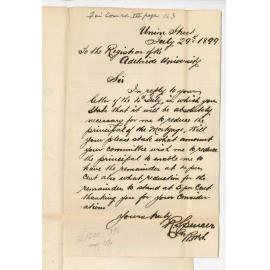 Union Street
July 29th 1899
To the Registrar of the
Adelaide University
Sir
In reply to your
letter of the 16 July, in which you
State that it will be absolutely
necessary for me to reduce the
principal of the Mortgage, Will
you please state what amount
your committee wish me to reduce
the principal to enable me to
have the remainder at 4½ per
Cent also what reduction for the
remainder to stand at 5 per Cent
thanking you for your Consider-
ation
Yours truly
R Spencer